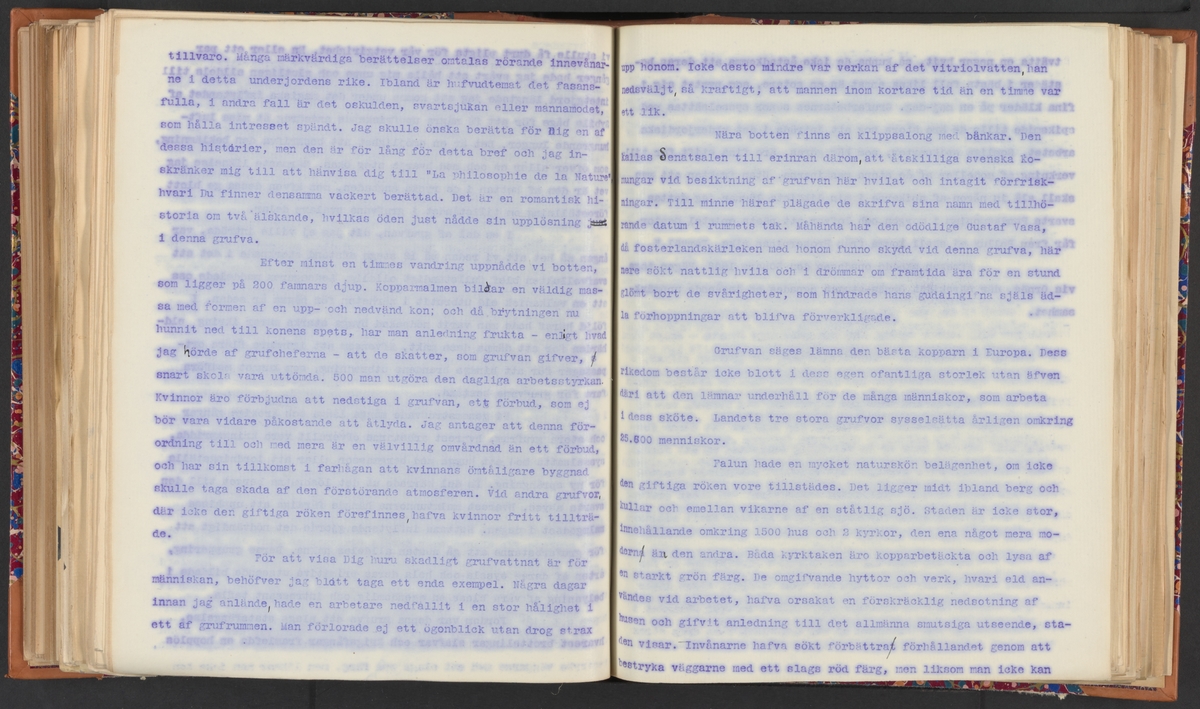 tillvaro. Många märkvärdiga berättelser omtalas rörande innevånar-
ne i detta underjordens rike. Ibland är hufvudtemat det fasans-
fulla, i andra fall är det oskulden, svartsjukan eller mannamodet,
som hålla intresset spändt. Jag skulle önska berätta för Dig en af
dessa historier, men den är för lång för detta bref och jag in-
skränker mig till att hänvisa dig till "La philosophie de la Nature"
hvari Du finner densamma vackert berättad. Det är en romantisk hi-
storia om två älskande, hvilkas öden just nådde sin upplösning
i denna grufva.
Efter minst en timmes vandring uppnådde vi botten,
som ligger på 200 famnars djup. Kopparmalmen bildar en väldig mas-
sa med formen af en upp- och nedvänd kon; och då brytningen nu
hunnit ned till konens spets, har man anledning frukta - enligt hvad
jag hörde af grufcheferna - att de skatter, som grufvan gifver,
snart skola vara uttömda. 500 man utgöra den dagliga arbetsstyrkan.
Kvinnor äro förbjudna att nedstiga i grufvan, ett förbud, som ej
bör vara vidare påkostande att åtlyda. Jag antager att denna för-
ordning till och med mera är en välvillig omvårdnad än ett förbud,
och har sin tillkomst i farhågan att kvinnans ömtåligare byggnad
skulle taga skada af den förstörande atmosferen. Vid andra grufvor,
där icke den giftiga röken förefinnes, hafva kvinnor fritt tillträ-
de.
För att visa Dig huru skadligt grufvattnat är för
människan, behöfver jag blott taga ett enda exempel. Några dagar
innan jag anlände, hade en arbetare nedfallit i en stor hålighet i
ett af grufrummen. Man förlorade ej ett ögonblick utan drog strax
upp honom. Icke desto mindre var verkan af det vitriolvatten, han
nedsväljt, så kraftigt, att mannen inom kortare tid än en timme var
ett lik.
Nära botten finns en klippsalong med bänkar. Den
kallas Senatsalen till erinran därom, att åtskilliga svenska Ko-
nungar vid besiktning af grufvan här hvilat och intagit förfrisk-
ningar. Till minne häraf plägade de skrifva sina namn med tillhö-
rande datum i rummets tak. Måhända har den odödlige Gustaf Vasa,
då fosterlandskärleken med honom funno skydd vid denna grufva, här
nere sökt nattlig hvila och i drömmar om framtida ära för en stund
glömt bort de svårigheter, som hindrade hans gudaingifna själs äd-
la förhoppningar att blifva förverkligade.
Grufvan säges lämna den bästa kopparn i Europa. Dess
rikedom består icke blott i dess egen ofantliga storlek utan äfven
däri att den lämnar underhåll för de många människor, som arbeta
i dess sköte. Landets tre stora grufvor sysselsätta årligen omkring
25.600 menniskor.
Falun hade en mycket naturskön belägenhet, om icke
den giftiga röken vore tillstädes. Det ligger midt ibland berg och
kullar och emellan vikarne af en ståtlig sjö. Staden är icke stor,
innehållande omkring 1500 hus och 2 kyrkor, den ena något mera mo-
dern än den andra. Båda kyrktaken äro kopparbetäckta och lysa af
en starkt grön färg. De omgifvande hyttor och verk, hvari eld an-
vändes vid arbetet, hafva orsakat en förskräcklig nedsotning af
husen och gifvit anledning till det allmänna smutsiga utseende, sta-
den visar. Invånarne hafva sökt förbättra förhållandet genom att
bestryka väggarne med ett slags röd färg, men liksom man icke kan